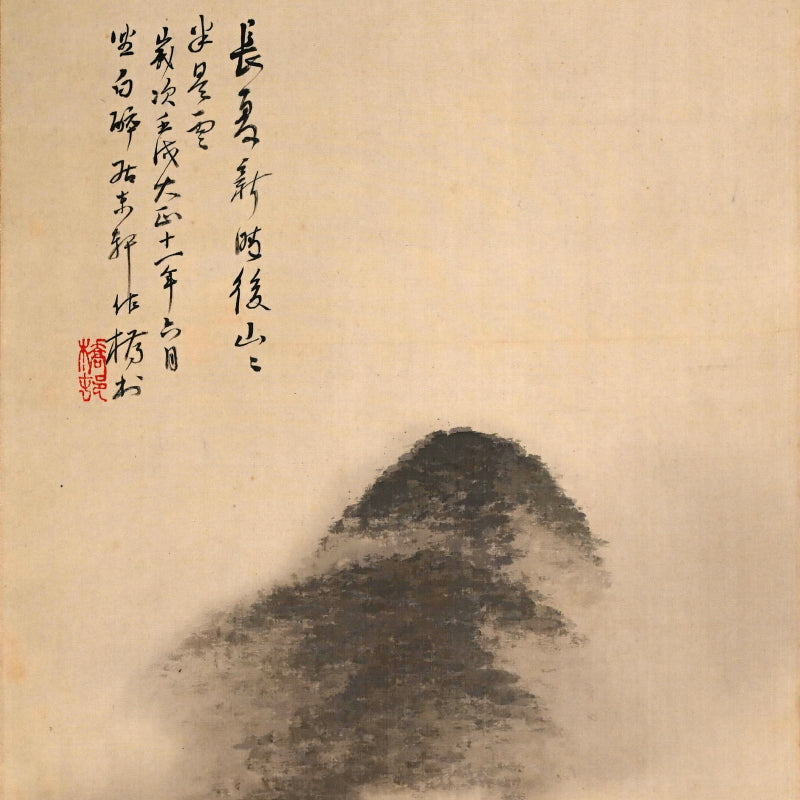 長夏新晴後山〻
半是雲
歳次壬戌大正十一年六月
白酔居東軒作橋村
橋邨